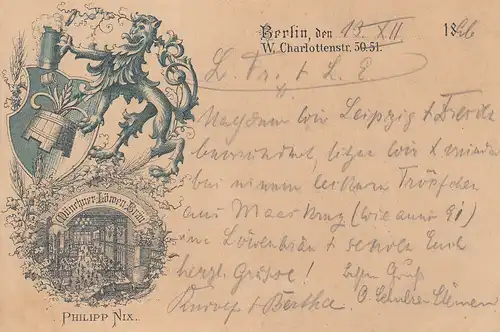 Berlin, den 13. XII 18
W. Charlottenstr. 50.51.
L. Fr. & L. E.
Nachdem wir Leipzig &
bewundert, sitzen wir
bei einem leckern Tröpfchen
aus Maaskrug (wie anno 91)
im Löwenbräu & senden Euch
herzl. Grüße!
Rudolf & Bertha
Münchner Löwen-Bräu
PHILIPP NIX.